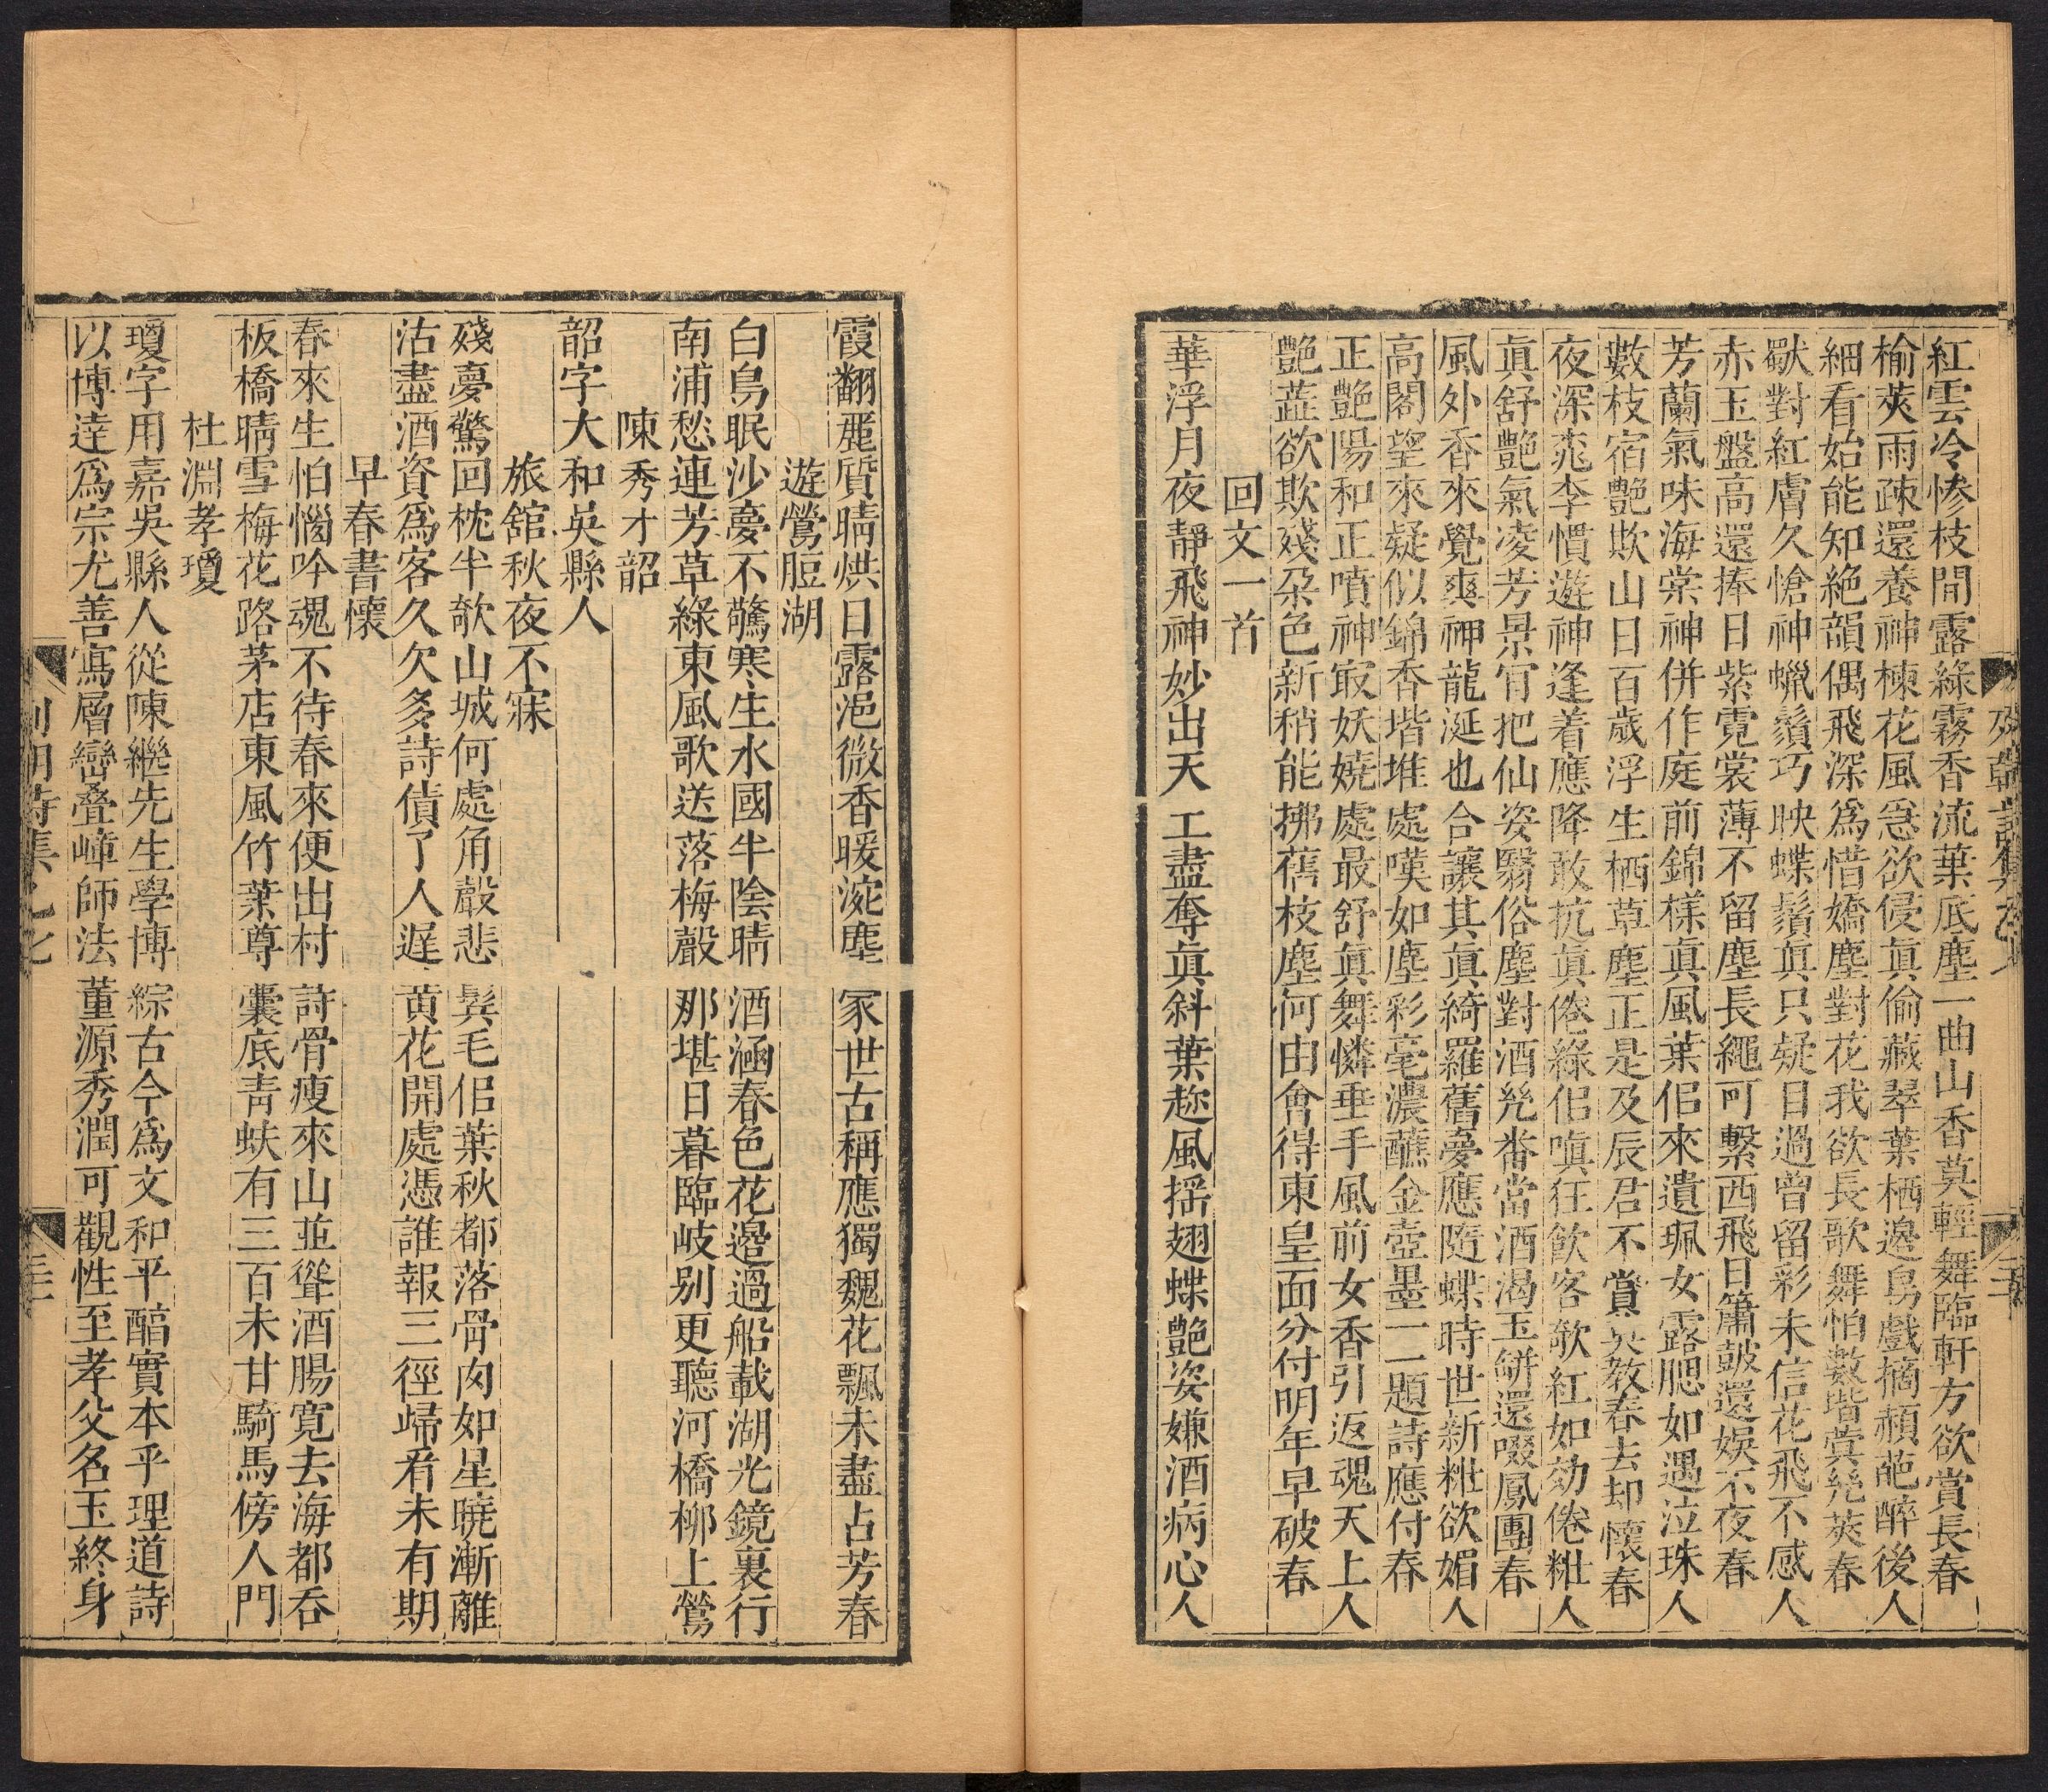 紅雲冷慘枝間露綠霧香流葉底塵一曲山香莫輕舞臨軒方欲賞長春
榆莢雨疎還養神楝花風急欲侵眞偷藏翠葉栖邊鳥戲摘頳葩醉後人
細看始能知絶韻偶飛深爲惜嬌塵對花我欲長歌舞怕數堦蓂兊莢春
獃對紅膚久愴神蠟鬚巧映蝶鬚眞只疑目過曾留彩未信花飛不感人
赤玉盤高還捧日紫霓裳薄不留塵長繩可繫西飛日簫皷還娛不夜春
芳蘭氣味海棠神併作庭前錦樣眞風葉佀來遺珮女露腮如遇泣珠人
數枝宿艶欺山日百歲浮生栖草塵正是及辰君不賞 教春去却懷春
夜深桃李慣遊神逢着應降敢抗眞倦綠佀嗔狂飲客欹紅如効倦粧人
眞舒艶氣凌芳景肎把仙姿翳俗塵對酒兊畨當酒渴玉缾還啜鳳團春
風外香來覺爽神龍涎也合讓其眞綺羅舊夢應隨蝶時世新粧欲媚人
高閣望來疑似錦香堦堆處嘆如塵彩毫濃蘸金壺墨一一題詩應付春
正艶陽和正噴神㝡妖嬈處最舒眞舞憐垂手風前女香引返魂天上人
艶蘂欲欺殘朶色新稍能拂舊枝塵何由會得東皇面分付明年早破春
回文一首
華浮月夜靜飛神妙出天工盡奪眞斜葉趂風揺翅蝶艶姿嫌酒病心人
霞翻麗質晴烘日露浥微香暖浣塵冢世古稱應獨魏花飄未盡占芳春
遊鶯脰湖
白鳥眠沙夢不驚寒生水國半陰晴酒涵春色花邊過船載湖光鏡裏行
南浦愁連芳草綠東風歌送落梅聲那堪日暮臨岐别更聽河橋栁上鶯
陳秀才韶
韶字大和吳縣人
旅舘秋夜不寐
殘夢驚回枕半欹山城何處角聲悲鬂毛佀葉秋都落骨肉如星曉漸離
沽盡酒資爲客久欠多詩債了人遅黄花開處憑誰報三徑歸看未有期
早春書懷
春來生怕惱吟魂不待春來便出村詩骨瘦來山並聳酒腸寛去海都呑
板橋晴雪梅花路茅店東風竹葉尊囊底靑蚨有三百未甘騎馬傍人門
杜淵孝瓊
瓊字用嘉吳縣人從陳繼先生學博綜古今爲文和平醕實本乎理道詩
以博逹爲宗尤善寫層巒叠嶂師法董源秀潤可觀性至孝父名玉終身